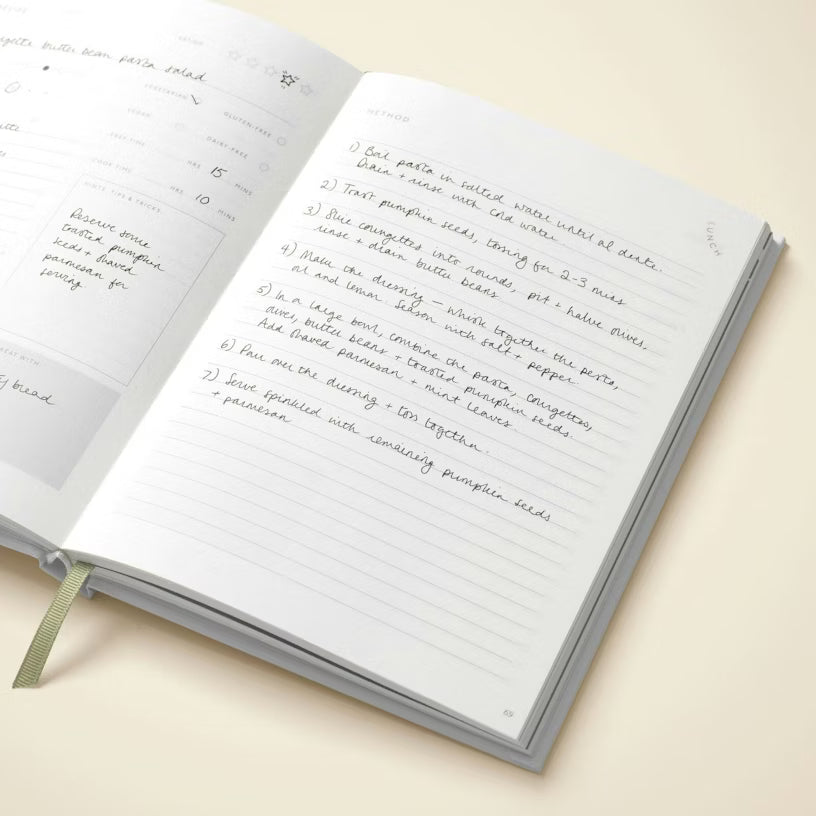 RATING
courgette butter bean pasta salad
VEGETARIAN
GLUTEN-FREE
VEGAN
DAIRY-FREE
PREP TIME
HRS 15 MINS
COOK TIME
HRS 10 MINS
HINTS, TIPS & TRICKS
Reserve some
toasted pumpkin
seeds + shaved
parmesan for
serving
GREAT WITH
bread
METHOD
1) Boil pasta in salted water until al dente.
Drain + rinse with cold water.
2) Toast pumpkin seeds, tossing for 2-3 mins
3) Slice courgettes into rounds, pit + halve olives,
rinse + drain butter beans
4) Make the dressing – whisk together the pesto,
oil and lemon. Season with salt + pepper.
5) In a large bowl, combine the pasta, courgettes,
olives, butter beans + toasted pumpkin seeds.
Add shaved parmesan + mint leaves.
6) Pour over the dressing + toss together.
7) Serve sprinkled with remaining pumpkin seeds
+ parmesan
LUNCH
69